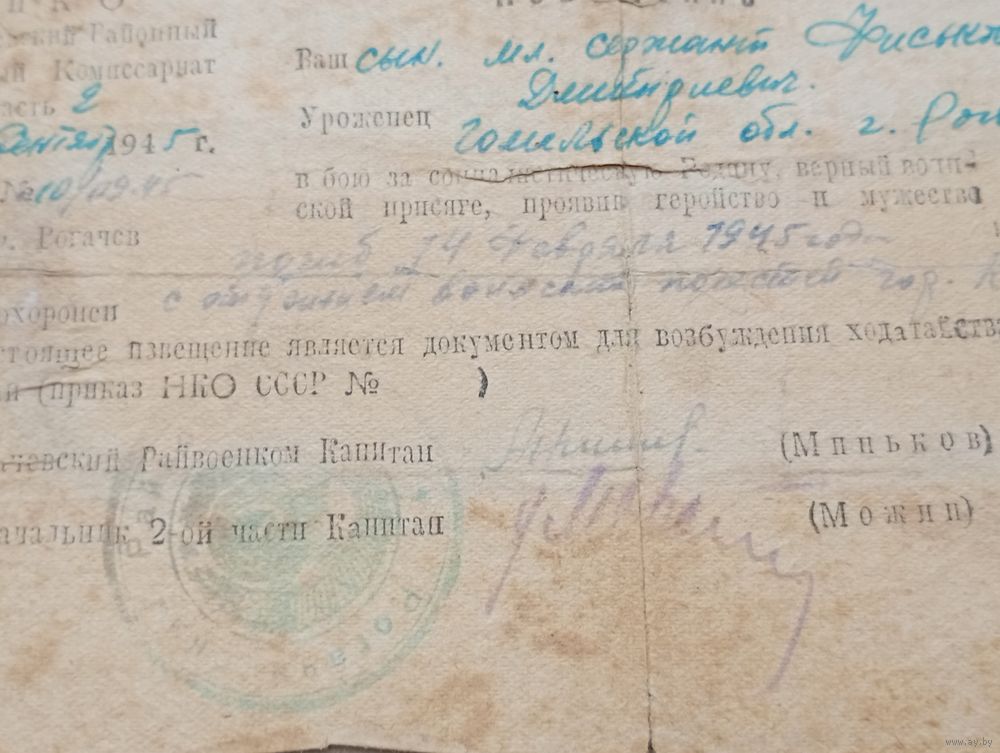 НКО
Районный
Комиссариат
часть 2
1945 г.
№ 10/09.45
г. Рогачев
Ваш сын. мл. сержант
Дмитриевич.
Уроженец Гомельской обл. г. Рог
в бою за социалистическую Родину, верный воин-
ской присяге, проявив геройство и мужество
погиб 14 февраля 1945 года
похоронен с отданием воинских почестей гор.
стоящее извещение является документом для возбуждения ходатайства
ий (приказ НКО СССР № )
ачевский Райвоенком Капитан (Миньков)
ачальник 2-ой части Капитан (Можин)
www.ay.by